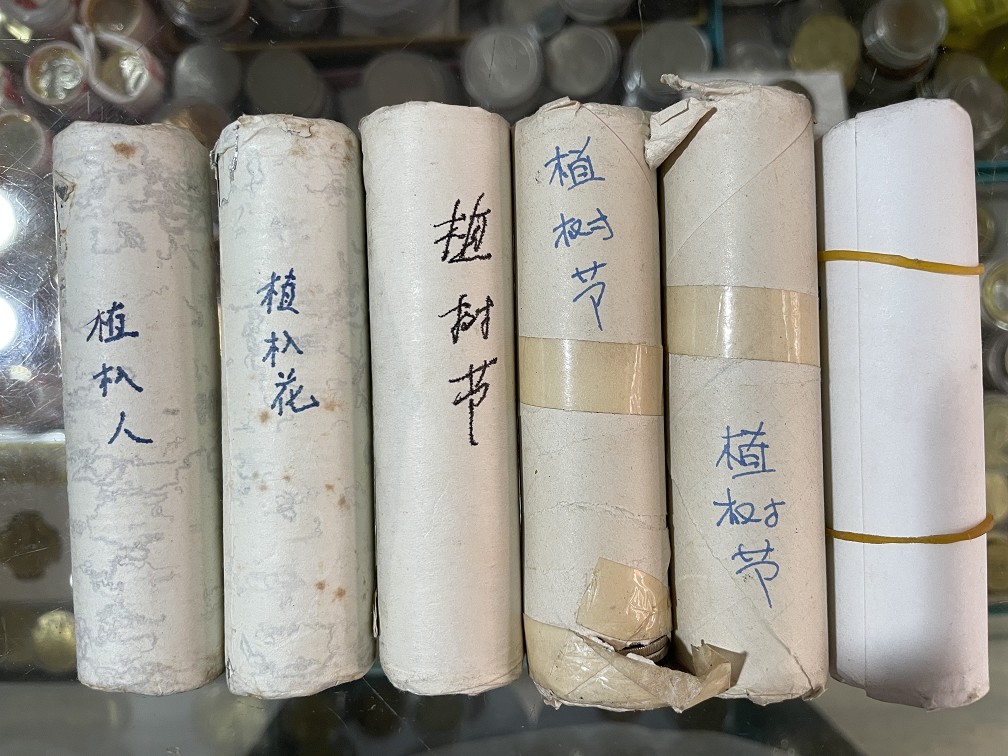 植朳人
植朳花
植树节
植树节
植树节